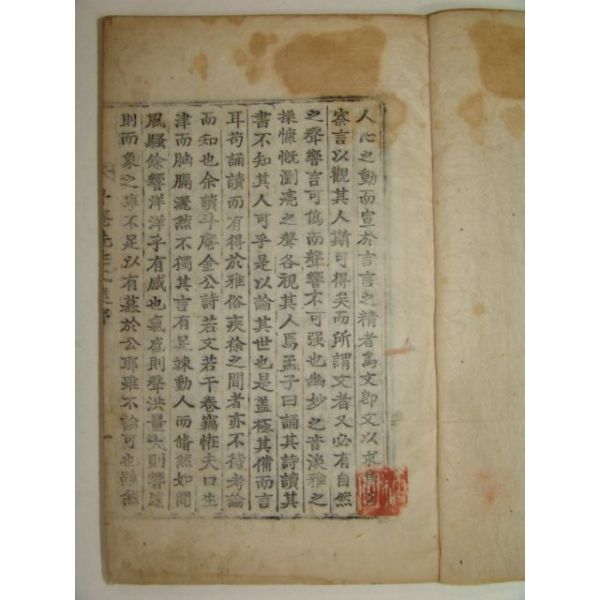 人心之動而宣於言言之精者爲文卽文以求其
察言以觀其人斯可得矣而所謂文者又必有自然
之聲響言可僞而聲響不可强也幽妙之音淡雅之
操慷慨瀏亮之聲各視其人焉孟子曰誦其詩讀其
書不知其人可乎是以論其世也是盖極其備而言
耳苟誦讀而有得於雅俗疾徐之間者亦不待考論
而知也余讀斗庵金公詩若文若干卷竊恠夫口生
津而腦膈灑然不獨其言有足竦動人而脩然如聞
風騷餘響洋洋乎有感也氣㢤則聲洪量大則響遠
則而象之寧不足以有慕於公耶雖不論可也雖然
斗庵先生文集序